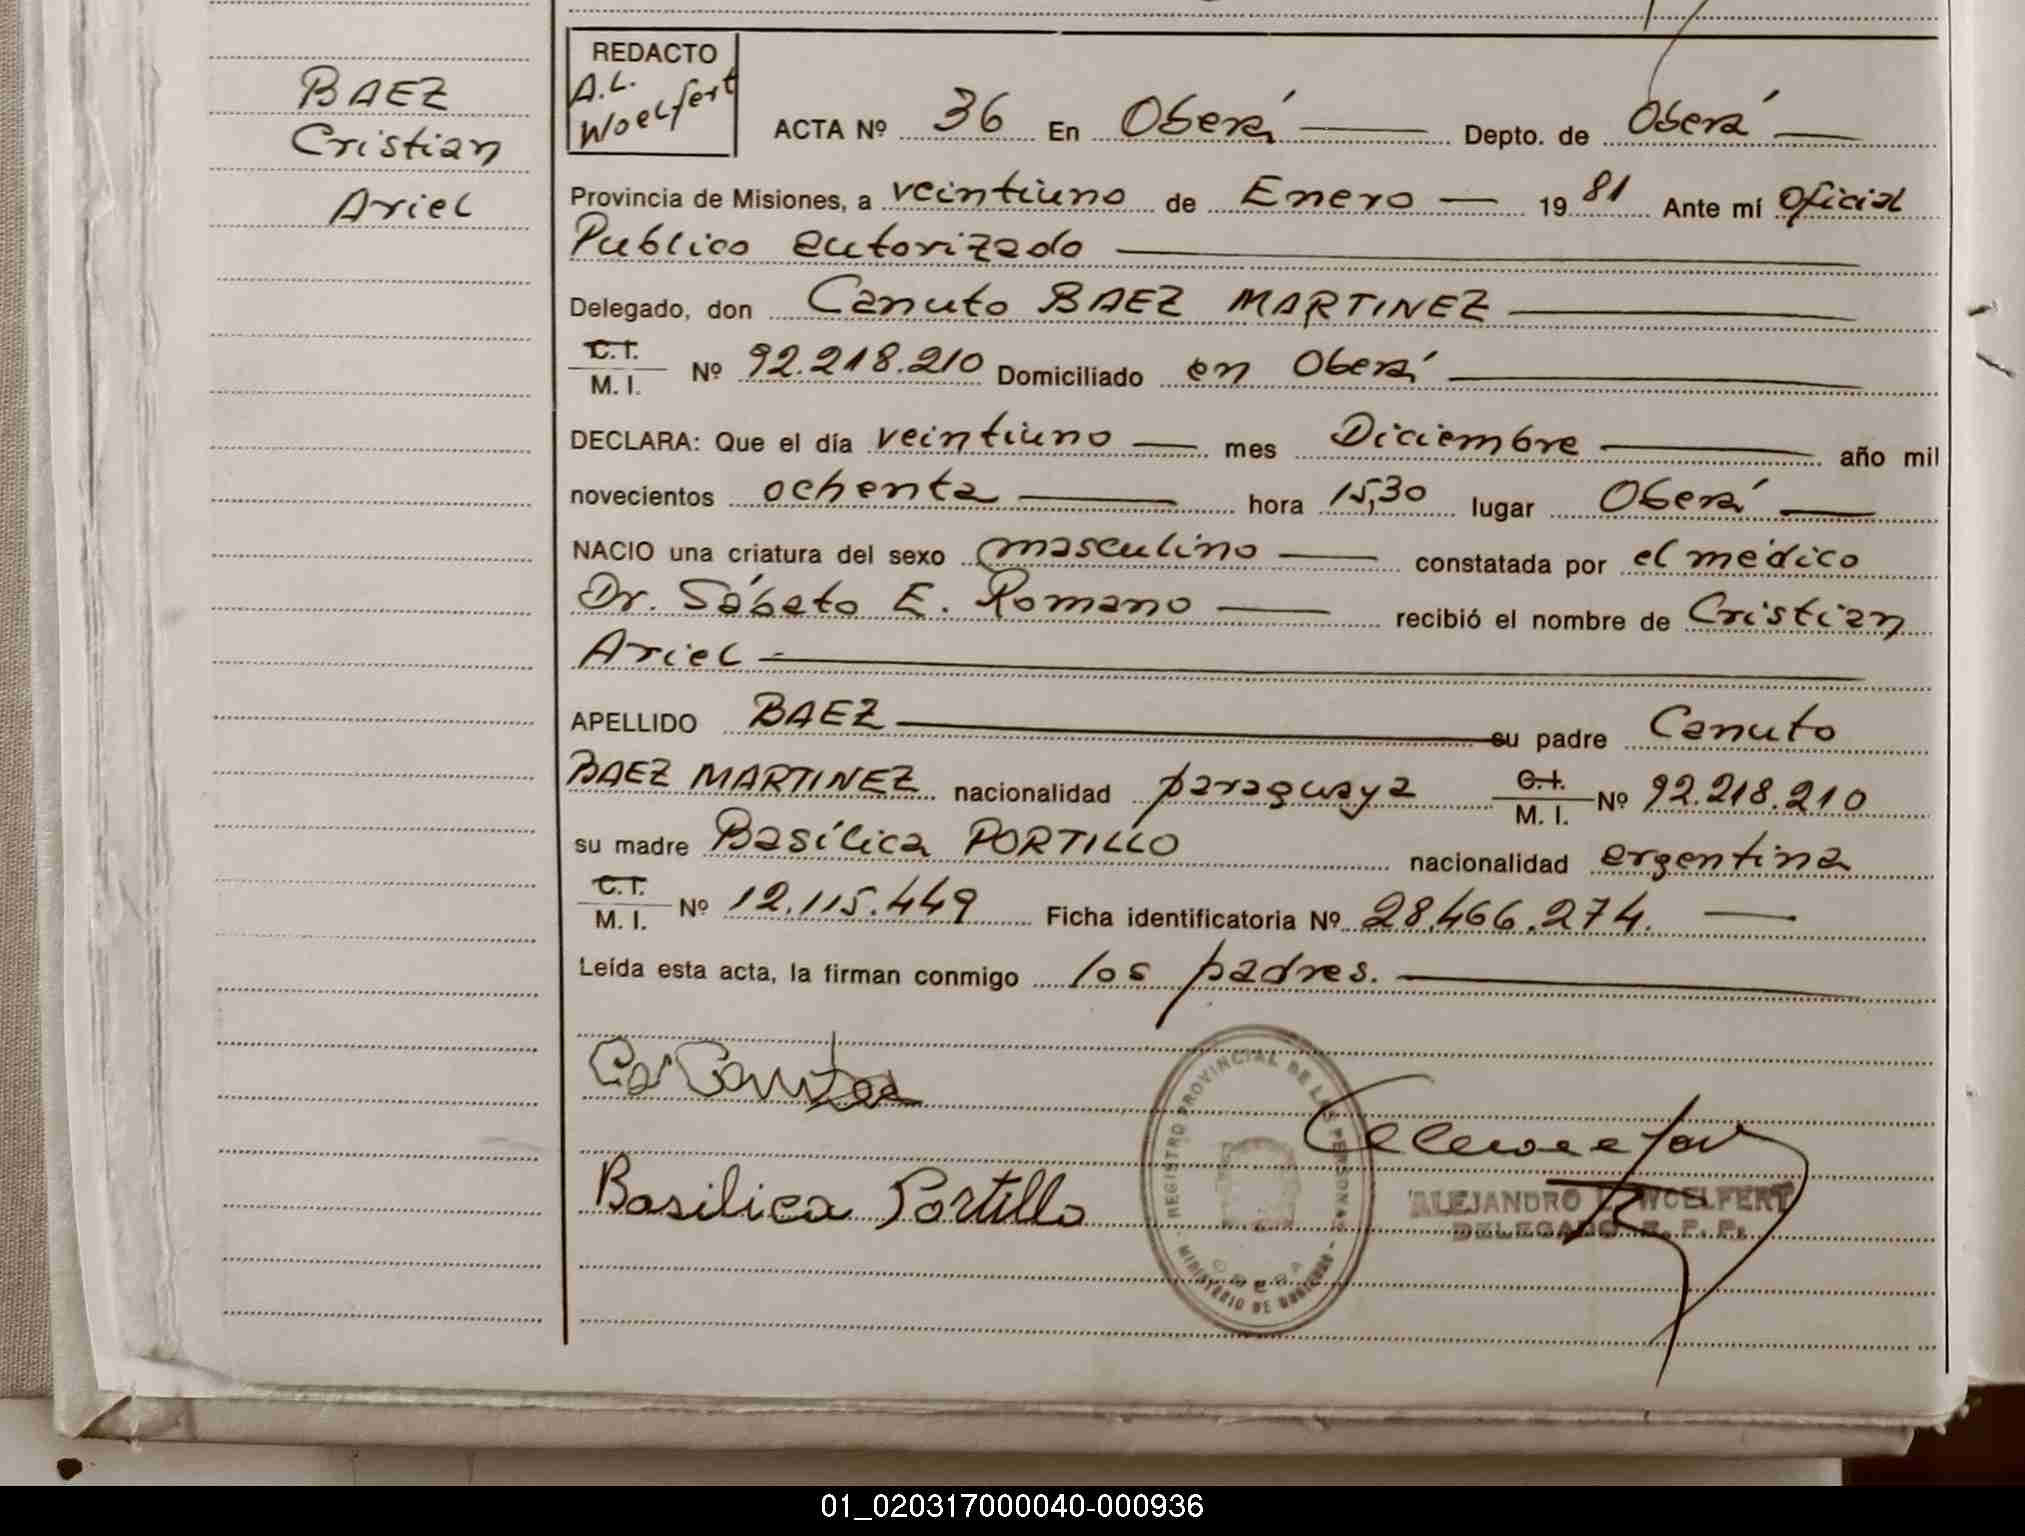 BAEZ
Cristian
Ariel
REDACTO
A.L.
Woelfert
ACTA Nº 36 En Oberá Depto. de Oberá
Provincia de Misiones, a veintiuno de Enero 1981 Ante mí Oficial
Publico autorizado
Delegado, don Canuto BAEZ MARTINEZ
C.I. M. I. Nº 92.218.210 Domiciliado en Oberá
DECLARA: Que el día veintiuno mes Diciembre año mil
novecientos ochenta hora 15,30 lugar Oberá
NACIO una criatura del sexo masculino constatada por el médico
Dr. Sábato E. Romano recibió el nombre de Cristian
Ariel
APELLIDO BAEZ su padre Canuto
BAEZ MARTINEZ nacionalidad paraguaya C.I. M. I. Nº 92.218.210
su madre Basílica PORTILLO nacionalidad argentina
C.I. M. I. Nº 12.115.449 Ficha identificatoria Nº 28.466.274.
Leída esta acta, la firman conmigo los padres.
Basilica Portillo
REGISTRO PROVINCIAL DE LAS PERSONAS
OBERA
MINISTERIO DE GOBIERNO
ALEJANDRO L. WOELFERT
DELEGADO R. P. P.
01_020317000040-000936